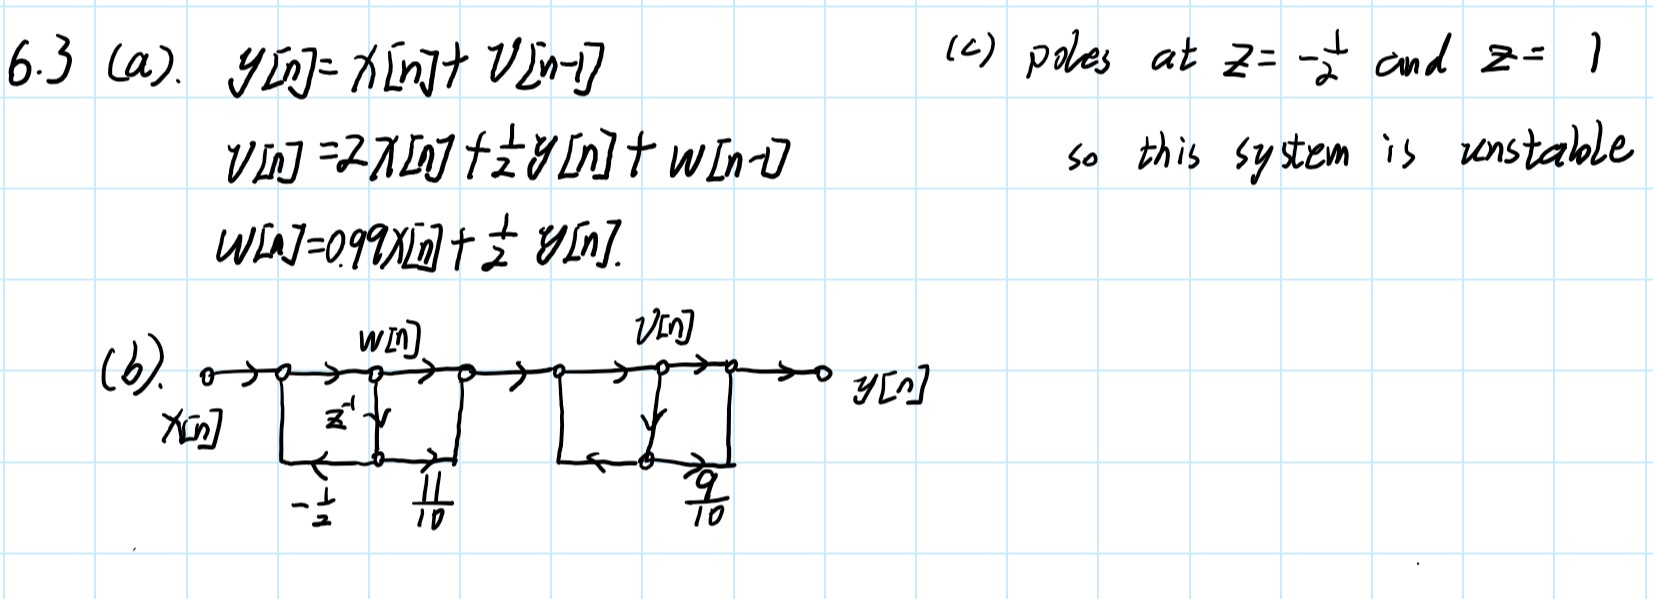 6.3 (a). y[n]=x[n]+v[n-1]
v[n]=2x[n]+1/2 y[n]+w[n-1]
w[n]=0.99x[n]+1/2 y[n].
(b). x[n] w[n] v[n] y[n]
z^-1
-1/2 11/10 9/10
(c) poles at z=-1/2 and z=1
so this system is unstable